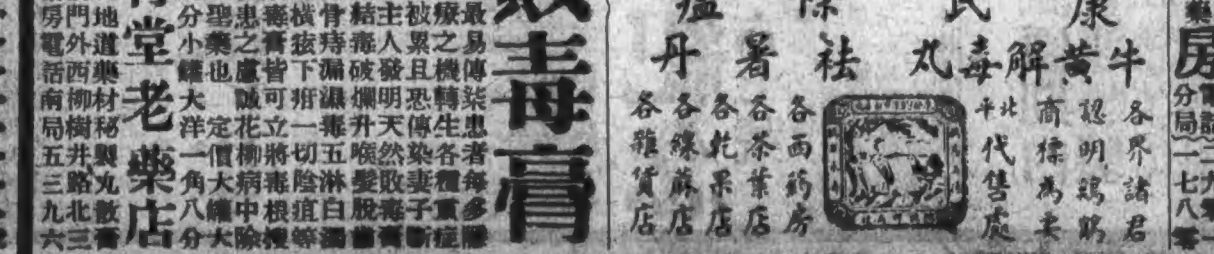 房
電話二九
分局一七八零
康
民
除
瘟
牛黃解毒丸
祛
暑
丹
各界諸君
認明鴉鵑
商標為要
北平代售處
各西葯房
各茶葉店
各乾果店
各線蔴店
各雜貨店
敗毒膏
最易傳染患者每多
療之機轉生各種重症
被累且恐傳染妻子斷
主人發明天然敗毒膏
結毒破爛升喉髮脫
骨痔漏濕毒五淋白濁
橫痃下疳一切陰疽等
毒膏皆可立將毒根搜
患之慮誠花柳病中除
聖藥也 定價大罐大
分小罐大洋一角八分
堂老藥店
地道藥材秘製丸散膏
門外西柳樹井路北三
房電活南局五三九六